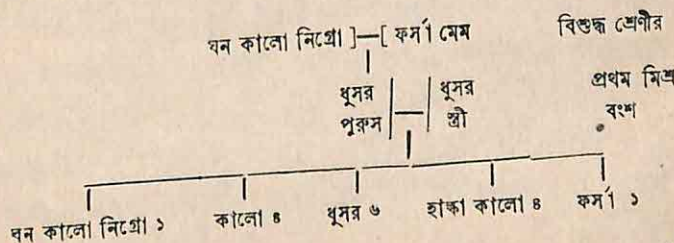 ঘন কালো নিগ্রো ]—[ ফর্সা মেম বিশুদ্ধ শ্রেণীর
ধূসর ধূসর প্রথম মিশ্র
পুরুষ স্ত্রী বংশ
ঘন কালো নিগ্রো ১ কালো ৪ ধূসর ৬ হাল্কা কালো ৪ ফর্সা ১